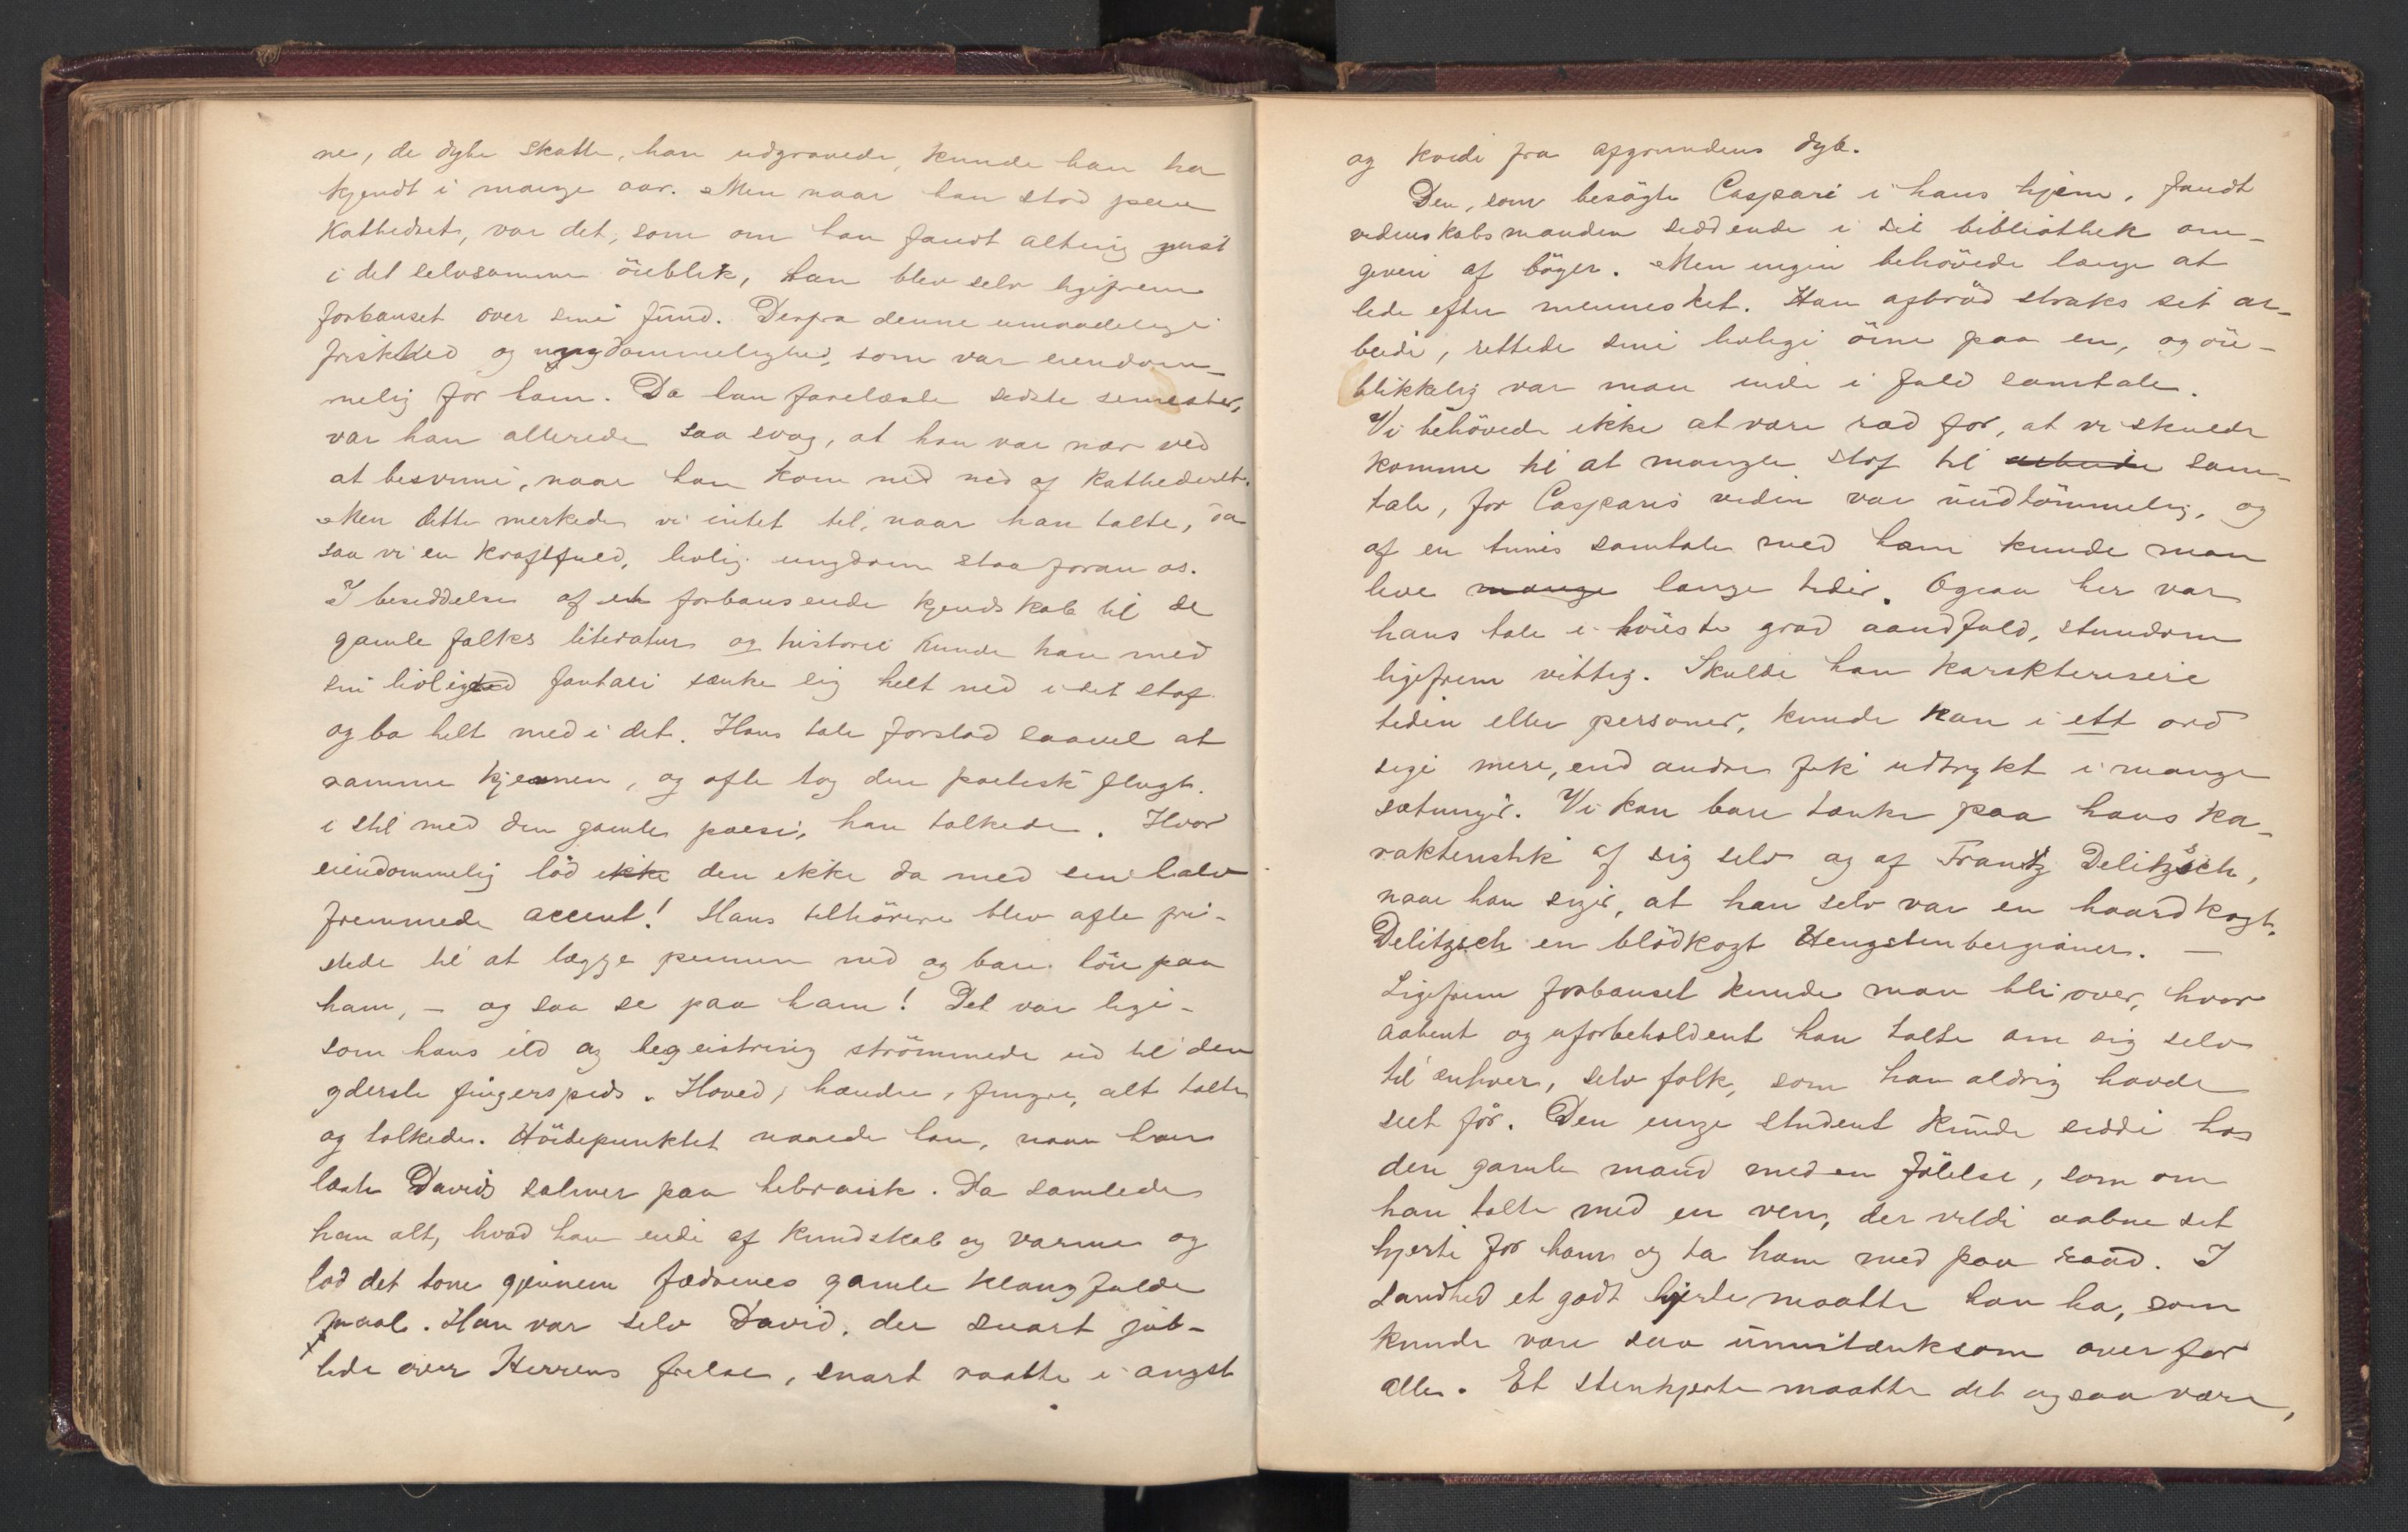 ne, de dybe skatte, han udgravede, kunde han ha
kjendt i mange aar. Men naar han stod paa
Kathedret, var det, som om han fandt alting just
i det selvsamme öieblik, han blev selv ligefrem
forbauset over sine fund. Derfra denne umaadelige
friskhed og ungdommelighed, som var eiendom-
melig for ham. Da han forelæste sidste semester,
var han allerede saa svag, at han var nær ved
at besvime, naar han kom ned ned af Kathederet.
Men dette merkede vi intet til, naar han talte, da
saa vi en kraftfuld, livlig ungdom staa foran os.
I besiddelse af en forbausende kjendskab til de
gamle folks literatur og historie kunde han med
sin livlige fantasi sænke sig helt ned i sit stof
og ha helt med i det. Hans tale forstod saavel at
ramme kjernen, og ofte tog den poetisk flugt.
i stil med den gamle poesi, han tolkede. Hvor
eiendommelig löd ikke den ikke da med sin halv
fremmede accent! Hans tilhörere blev ofte fri-
stede til at lægge pennen ned og bare löie paa
ham, – og saa se paa ham! Det var lige-
som hans ild og begeistring strömmede ud til den
yderste fingerspids. Hoved, hænder, fingre, alt talte
og tolkede. Höidepunktet naaede han, naar han
læste Davids salmer paa hebraisk. Da samlede
han alt, hvad han eiede af kundskab og varme og
lod det tone gjennem fædrenes gamle klangfulde
maal. Han var selv David, der snart jub-
lede over Herrens frelse, snart raabte i angst
og kvide fra afgrundens dyb.
Den, som besögte Caspari i hans hjem, fandt
videnskabsmanden siddende i sit bibliothek om-
given af böger. Men ingen behövede længe at
lede efter mennesket. Han afbröd straks sit ar-
beide, rettede sine livlige öine paa en, og öie-
blikkelig var man inde i fuld samtale.
Vi behövede ikke at være ræd for, at vi skulde
komme til at mangle stof til arbeide sam-
tale, for Casparis viden var uudtömmelig, og
af en times samtale med ham kunde man
leve mange lange tider. Ogsaa her var
hans tale i höieste grad aandfuld, stundom
ligefrem vittig. Skulde han karakterisere
tiden eller personer, kunde han i ett ord
sige mere, end andre fik udtrykt i mange
sætninger. Vi kan bare tænke paa hans ka-
rakteristik af sig selv og af Frantz Delitzsch,
naar han siger, at han selv var en haardkogt,
Delitzsch en blödkogt Hengstenbergianer. —
Ligefrem forbauset kunde man bli over, hvor
aabent og uforbeholdent han talte om sig selv
til enhver, selv folk, som han aldrig havde
seet för. Den unge student kunde sidde hos
den gamle mand med en fölelse, som om
han talte med en ven, der vilde aabne sit
hjerte for ham og ta ham med paa raad. I
sandhed et godt hjerte maatte han ha, som
kunde være saa umistænksom over for
alle. Et stenhjerte maatte det ogsaa være,